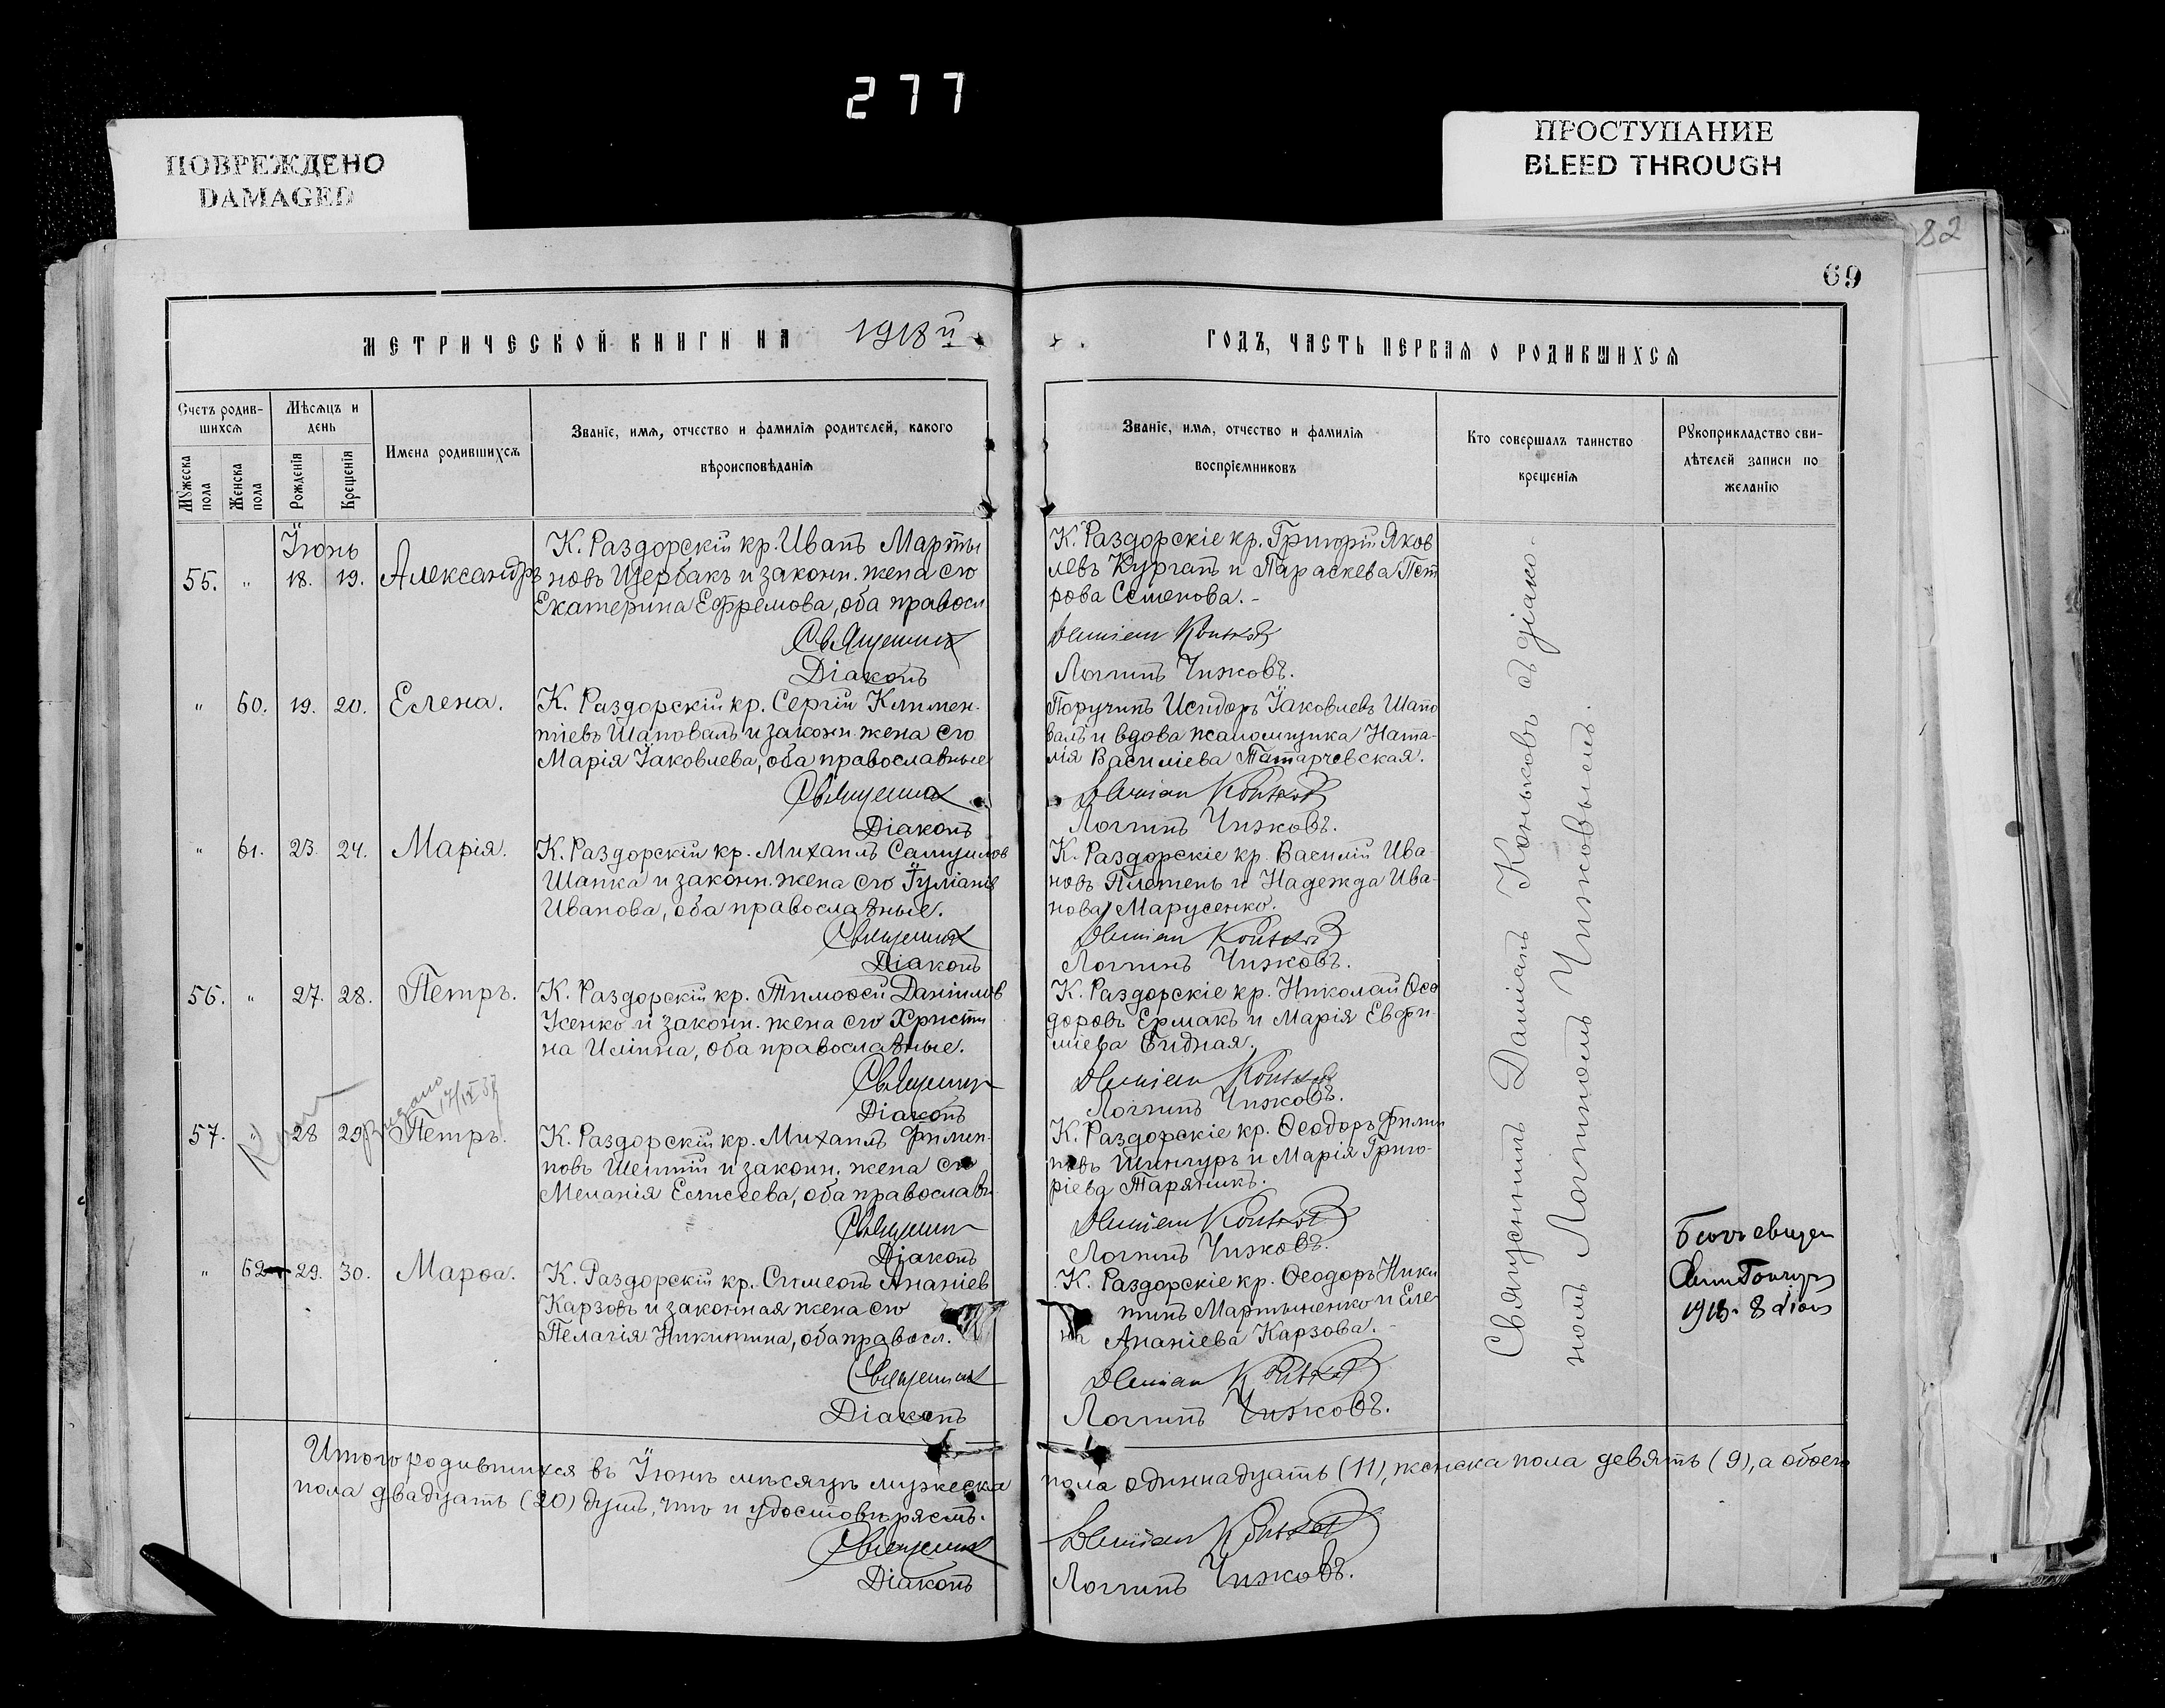 277
ПОВРЕЖДЕНО
DAMAGED
ПРОСТУПАНИЕ
BLEED THROUGH
82
69
МЕТРИЧЕСКОЙ КНИГИ НА 1918 й
ГОДЪ, ЧАСТЬ ПЕРВАЯ О РОДИВШИХСЯ
Счетъ родив-
шихся
Мужеска пола
Женска пола
Мѣсяцъ и
день
Рожденія
Крещенія
Имена родившихся
Званіе, имя, отчество и фамилія родителей, какого
вѣроисповѣданія
Званіе, имя, отчество и фамилія
воспріемниковъ
Кто совершалъ таинство
крещенія
Рукоприкладство сви-
дѣтелей записи по
желанію
Їюнь
55. " 18. 19. Александръ
К. Раздорскій кр. Иванъ Марты
новъ Щербакъ и законн. жена его
Екатерина Ефремова, оба правосл.
Священник
Діаконъ
К. Раздорскіе кр. Григорій Яков
левъ Курганъ и Параскева Пет
рова Семенова.-
Демиан Коньков
Логгинъ Чижовъ.
" 60. 19. 20. Елена.
К. Раздорскій кр. Сергій Климен-
тіевъ Шаповалъ и законн. жена его
Марія Їаковлева, оба православные
Священник
Діаконъ
Поручикъ Исидоръ Їаковлевъ Шапо
валъ и вдова псаломщика Ната-
лія Василіева Татарчевская.
Демиан Коньков
Логгинъ Чижовъ.
" 61. 23. 24. Марія.
К. Раздорскій кр. Михаилъ Самуилов
Шапка и законн. жена его Їуліанія
Иванова, оба православные.
Священник
Діаконъ
К. Раздорскіе кр. Василій Ива-
новъ Плетень и Надежда Ива-
нова Марусенко.
Демиан Коньков
Логгинъ Чижовъ.
56. " 27. 28. Петръ.
К. Раздорскій кр. Тимоѳей Даніилов
Усенко и законн. жена его Христи
на Иліина, оба православные.
Священник
Діаконъ
К. Раздорскіе кр. Николай Ѳео
доровъ Ермакъ и Марія Евфи-
міева Бидная.
Демиан Коньков
Логгинъ Чижовъ.
Выдано
57. " 28 29 Петръ.
К. Раздорскій кр. Михаилъ Филип-
повъ Шептій и законн. жена его
Меланія Елисеева, оба православн.
Священник
Діаконъ
К. Раздорскіе кр. Ѳеодоръ Филип
повъ Шингуръ и Марія Григо-
ріева Таряникъ.
Демиан Коньков
Логгинъ Чижовъ.
" 62 29. 30. Марѳа.
К. Раздорскій кр. Симеонъ Ананіев
Карзовъ и законная жена его
Пелагія Никитина, оба правосл.
Священник
Діаконъ
К. Раздорскіе кр. Ѳеодоръ Ники
тинъ Мартыненко и Еле
на Ананіева Карзова.-
Демиан Коньков
Логгинъ Чижовъ.
Священникъ Даміанъ Коньковъ съ діако-
номъ Логгиномъ Чижовымъ.
Итого родившихся въ Їюнѣ мѣсяцѣ мужеска пола одиннадцать (11), женска пола девять (9), а обоего
пола двадцать (20) душъ, что и удостовѣряетъ.
Священник
Діаконъ
Демиан Коньков
Логгинъ Чижовъ.